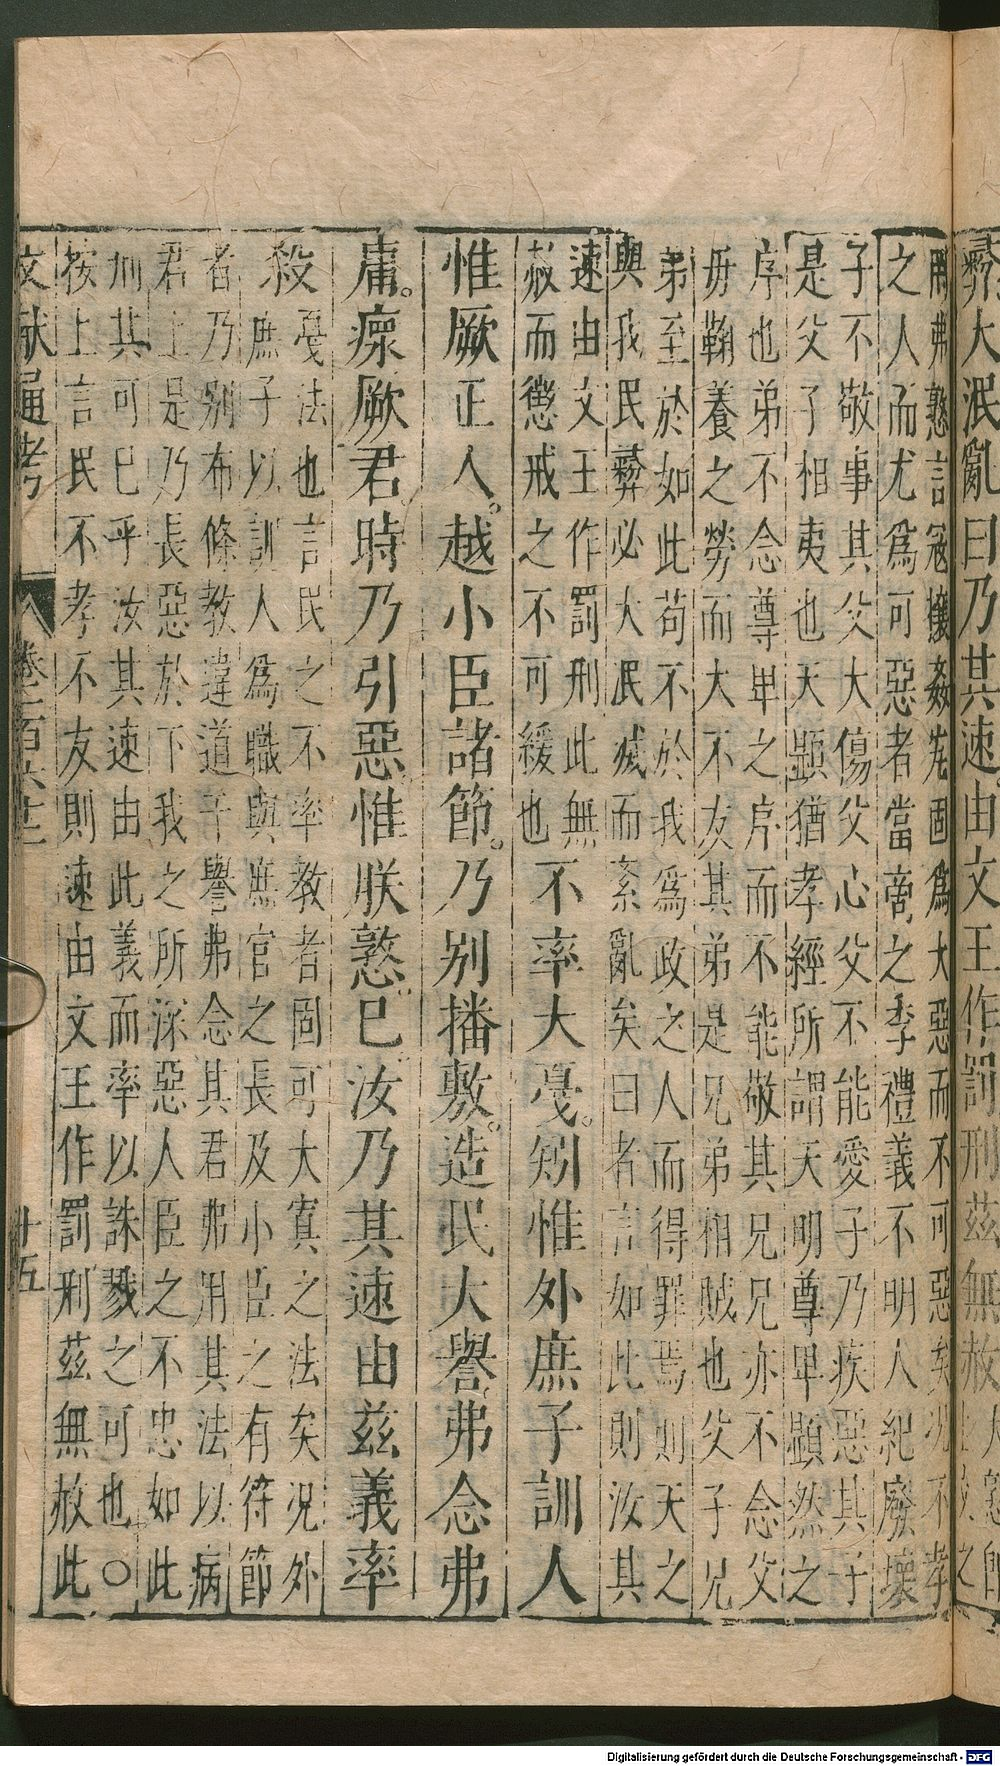 彛大泯亂曰乃其速由文王作罰刑茲無赦
罔弗憝言寇攘姦宄固爲大惡而不可惡矣况不孝
之人而尤爲可惡者當商之季禮義不明人紀廢壞
子不敬事其父大傷父心父不能愛子乃疾惡其子
是父子相夷也天顯猶孝經所謂天明尊卑顯然之
序也弟不念尊卑之序而不能敬其兄兄亦不念父
母鞠養之勞而大不友其弟是兄弟相賊也父子兄
弟至於如此苟不於我爲政之人而得罪焉則天之
與我民彛必大泯滅而紊亂矣曰者言如此則汝其
速由文王作罰刑此無
赦而懲戒之不可緩也
不率大戛。矧惟外庶子訓人
惟厥正人。越小臣諸節。乃别播敷。造民大譽。弗念弗
庸。瘝厥君。時乃引惡。惟朕憝。已。汝乃其速由茲義率
殺
戛法也言民之不率教者固可大寘之法矣况外
庶子以訓人爲職與庶官之長及小臣之有符節
者乃别布條教違道干譽弗念其君弗用其法以病
君上是乃長惡於下我之所深惡人臣之不忠如此
刑其可已乎汝其速由此義而率以誅戮之可也○
按上言民不孝不友則速由文王作罰刑茲無赦此
文獻通考
十五
Digitalisierung gefördert durch die Deutsche Forschungsgemeinschaft - DFG